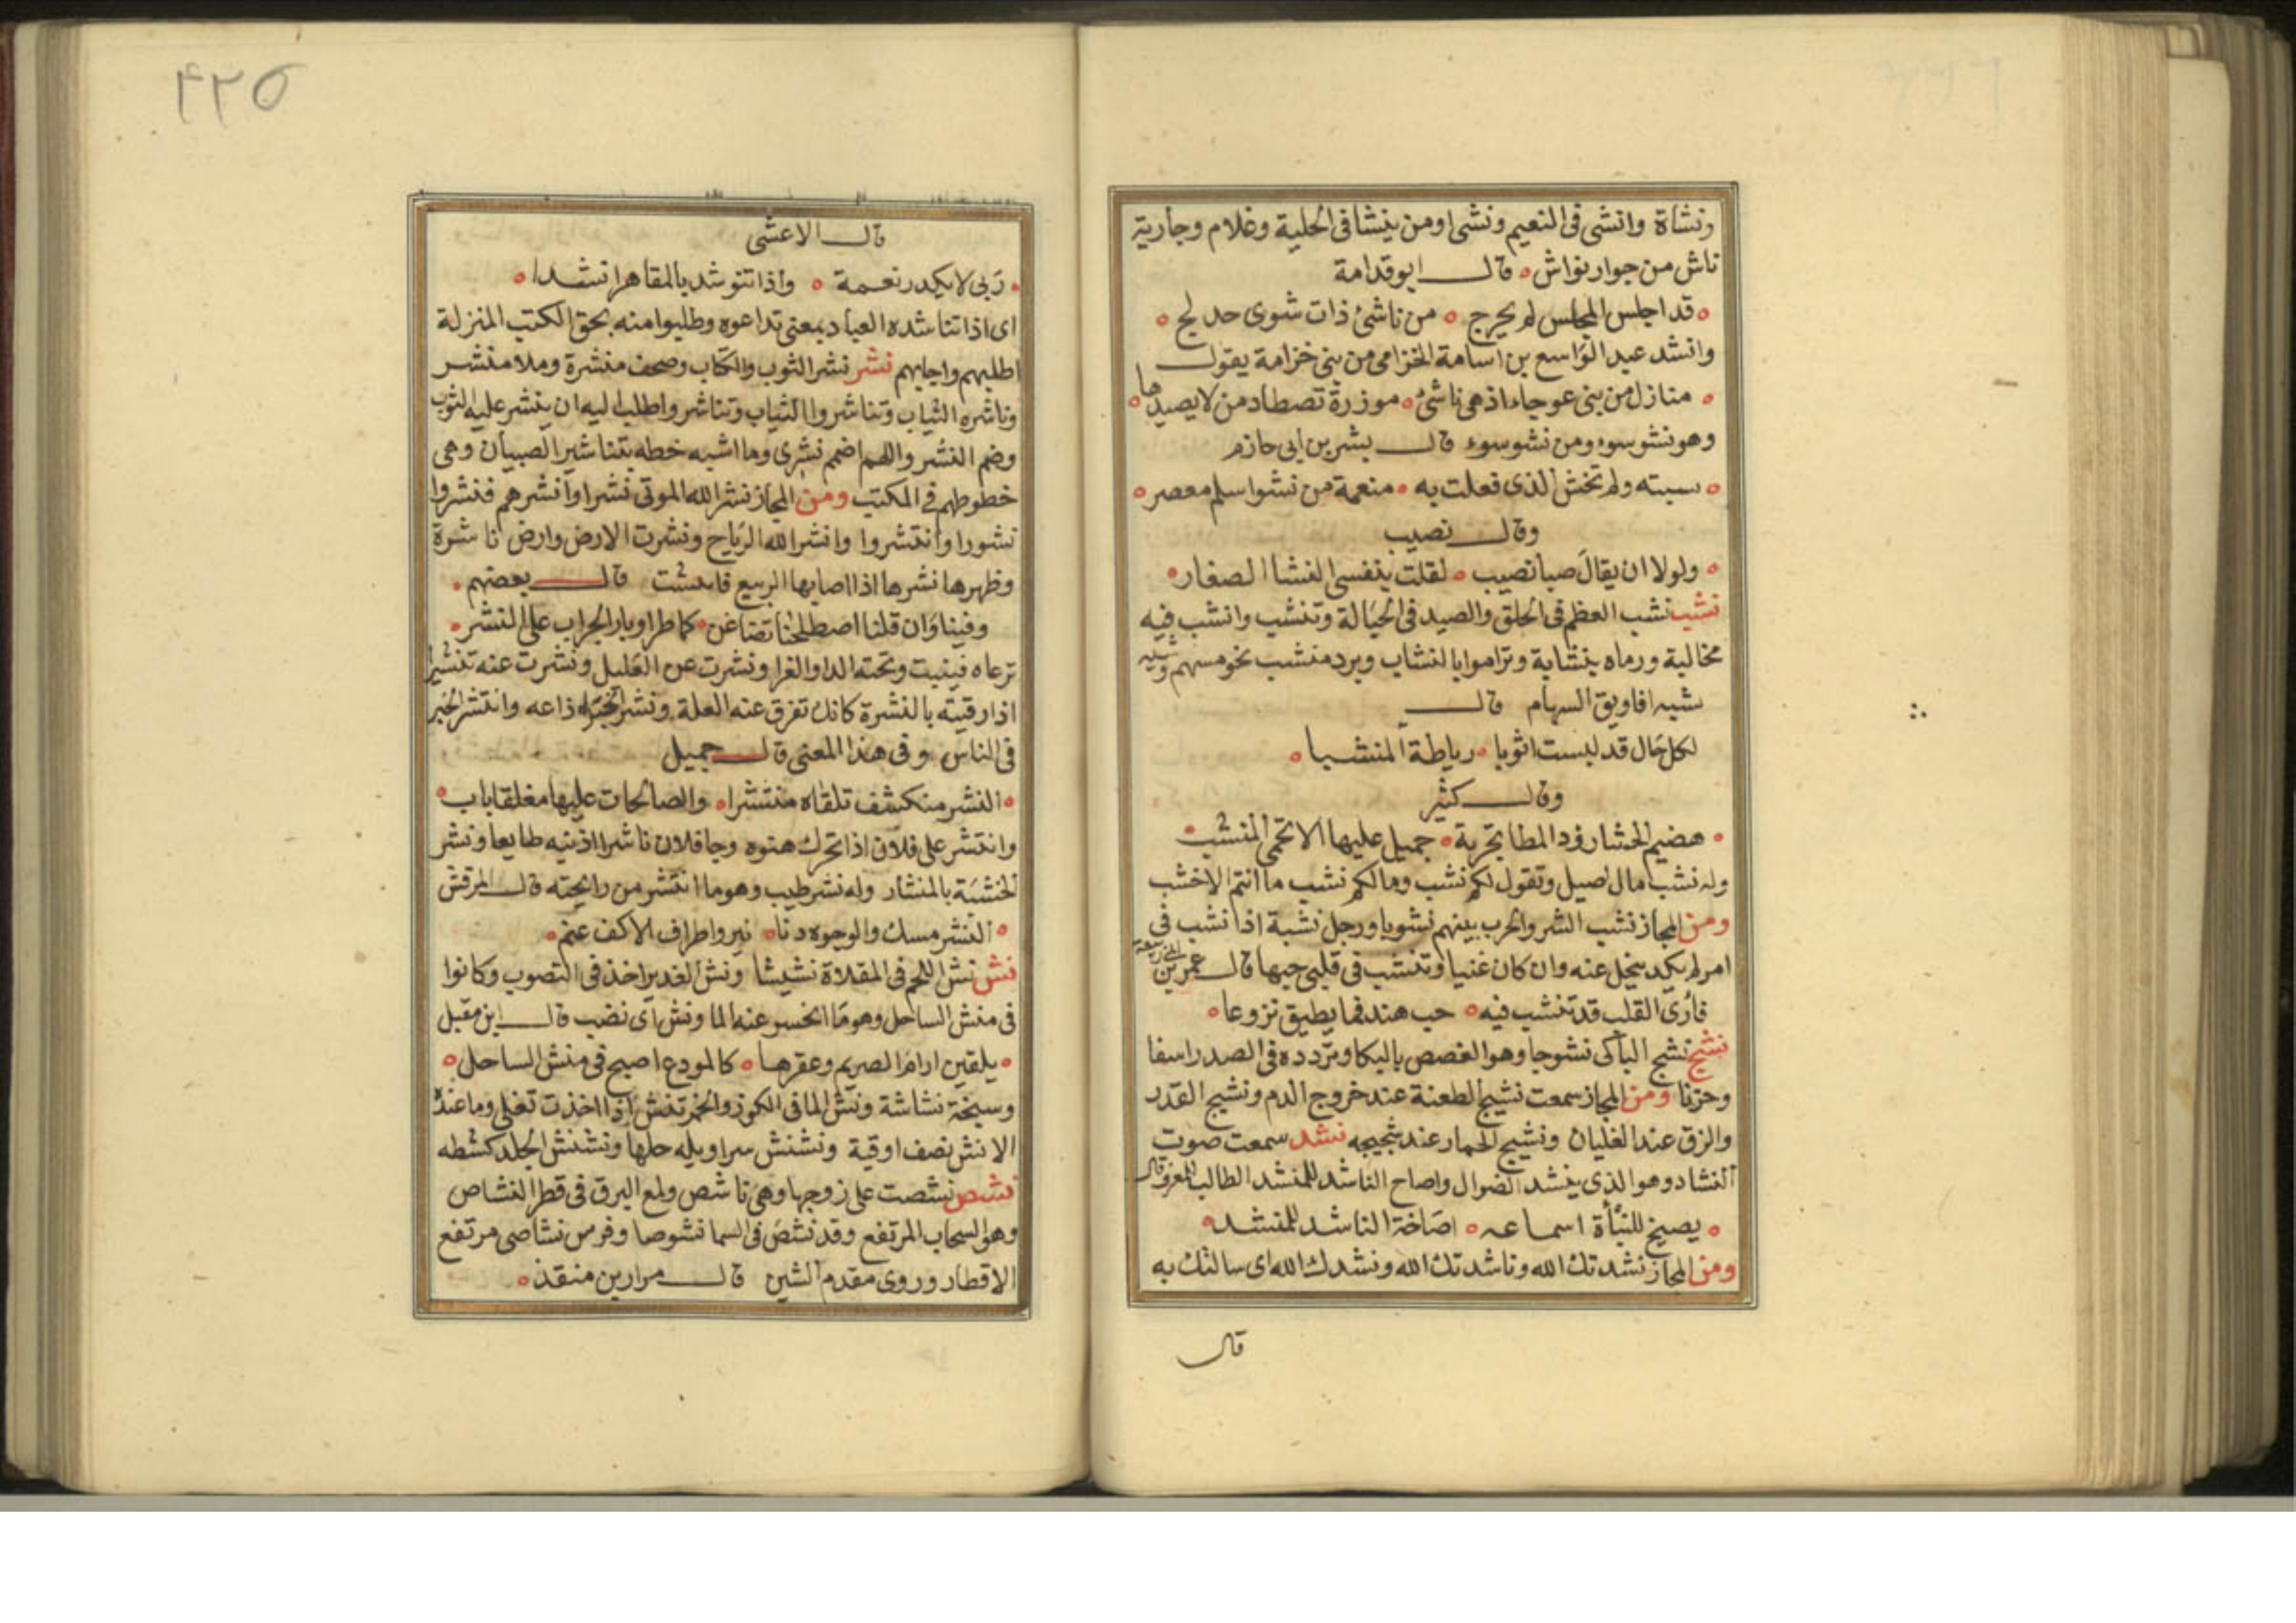 ونشأة وانشئ فى النعيم ونشئ اومن ينشأ فى الحلية وغلام وجارية
ناش من جوار نواش قال ابو قدامة
قد اجلس المجلس لم يحرج من ناشئ ذات شوى خدلج
وانشد عبد الواسع بن اسامة الخزامى من بنى خزامة يقول
منازل من بنى عوجاء اذ هى ناشئ موزرة تصطاد من لا يصيدها
وهو نشو سوء ومن نشو سوء قال بشر بن ابى حازم
سبته ولم تخش الذى فعلت به منعمة من نشوا سلم معصر
وقال نصيب
ولولا ان يقال صبا نصيب لقلت بنفسى النشا الصغار
نشب نشب العظم فى الحلق والصيد فى الحبالة وتنشب وانشب فيه
مخالبه ورماه بنشابة وتراموا بالنشاب وبرد منشب نحو مسهم وشيه
شبه افاويق السهام قال
لكل حال قد لبست اثوبا رياطة المنشبا
وقال كثير
هضيم الحشا رؤد المطا بخترية جميل عليها الاتحمى المنشب
وله نشب مال اصيل وتقول لكم نشب وما لكم نشب ما انتم الا خشب
ومن المجاز نشب الشر والحرب بينهم نشوبا ورجل نشبة اذا نشب فى
امر لم يكد ينحل عنه وان كان غنيا وتنشب فى قلبى حبها قال عمر بن ابى ربيعة
فارى القلب قد تنشب فيه حب هند فما يطيق نزوعا
نشج نشج الباكى نشوجا وهو الغصص بالبكا وتردده فى الصدر اسفا
وحزنا ومن المجاز سمعت نشيج الطعنة عند خروج الدم ونشيج القدر
والزق عند الغليان ونشيج الحمار عند شحيجه نشد سمعت صوت
النشاد وهو الذى ينشد الضوال واصاح الناشد للمنشد الطالب للمعرف قال
يصيخ للنبأة اسماعه اصاخة الناشد للمنشد
ومن المجاز نشدتك الله وناشدتك الله ونشدك الله اى سالتك به
قال
٤٢٥
قال الاعشى
ربى لا يكدر نعمة واذا تنوشد بالمقاهر انشدا
اى اذا تناشده العباد بمعنى تداعوه وطلبوا منه بحق الكتب المنزلة
اطلبهم واجابهم نشر نشر الثوب والكتاب وصحف منشرة وملا منشر
وناشره الثياب وتناشروا الثياب وتناشر واطلب اليه ان ينشر عليه الثوب
وضم النشر واللهم اضمم نشرى وما اشبه خطه بتناشير الصبيان وهى
خطوطهم فى المكتب ومن المجاز نشر الله الموتى نشرا وانشرهم فنشروا
نشورا وانتشروا وانشر الله الرياح ونشرت الارض وارض ناشرة
وظهرها نشرها اذا اصابها الربيع فانبتت قال بعضهم
وفينا وان قلنا اصطلحنا تضاغن كما طر اوبار الجراب على النشر
ترعاه فينبت وتحته الدا والغرا ونشرت عن العليل ونشرت عنه تنشيرا
اذا رقيته بالنشرة كانك تفرق عنه العلة ونشر الخبر اذاعه وانتشر الخبر
فى الناس وفى هذا المعنى قال جميل
النشر منكشف تلقاه منتشرا والصالحات عليها مغلقا باب
وانتشر على فلان اذا تحرك هنوه وجا فلان ناشرا اذنيه طايعا ونشر
الخشبة بالمنشار وله نشر طيب وهو ما انتشر من رايحته قال المرقش
النشر مسك والوجوه دنا نير واطراف الاكف عنم
نش نش اللحم فى المقلاة نشيشا ونش الغدير اخذ فى النضوب وكانوا
فى منش الساحل وهو ما انحسر عنه الما ونش اى نضب قال ابن مقبل
يلقين ارام الصريم وعفرها كالمودع اصبح فى منش الساحل
وسبخة نشاشة ونش الما فى الكوز والخمر تنش اذا اخذت تغلى وما عنده
الا نش نصف اوقية ونشنش سراويله حلها ونشنش الجلد كشطه
نشص نشصت على زوجها وهى ناشص ولمع البرق فى قطر النشاص
وهو السحاب المرتفع وقد نشص فى السما نشوصا وفرس نشاصى مرتفع
الاقطار وروى مقدم الشين قال مرار بن منقذ